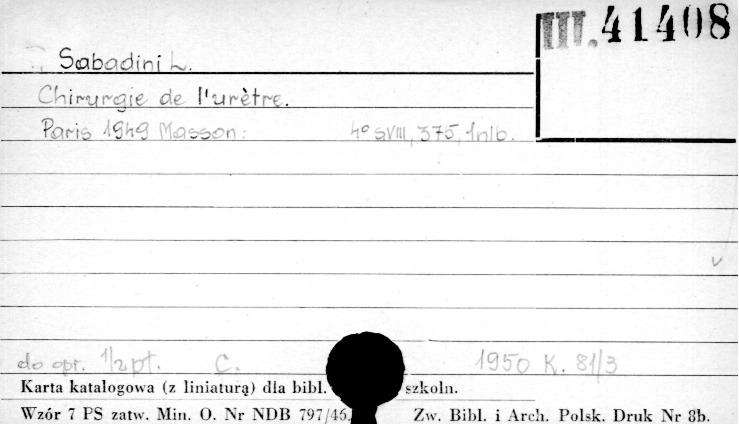 III. 41408
Sabadini L.
Chirurgie de l'urètre.
Paris 1949 Masson. 4° s. VIII, 375, 1 nlb.
do opr. 1/2 pł. C. 1950 K. 81/3
Karta katalogowa (z liniaturą) dla bibl. szkoln.
Wzór 7 PS zatw. Min. O. Nr NDB 797/46. Zw. Bibl. i Arch. Polsk. Druk Nr 8b.